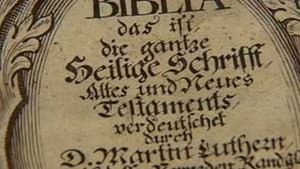 BIBLIA
das ist
die gantze
Heilige Schrifft,
Altes und Neues
Testaments,
verdeutschet
durch
D. Martin Luthern,